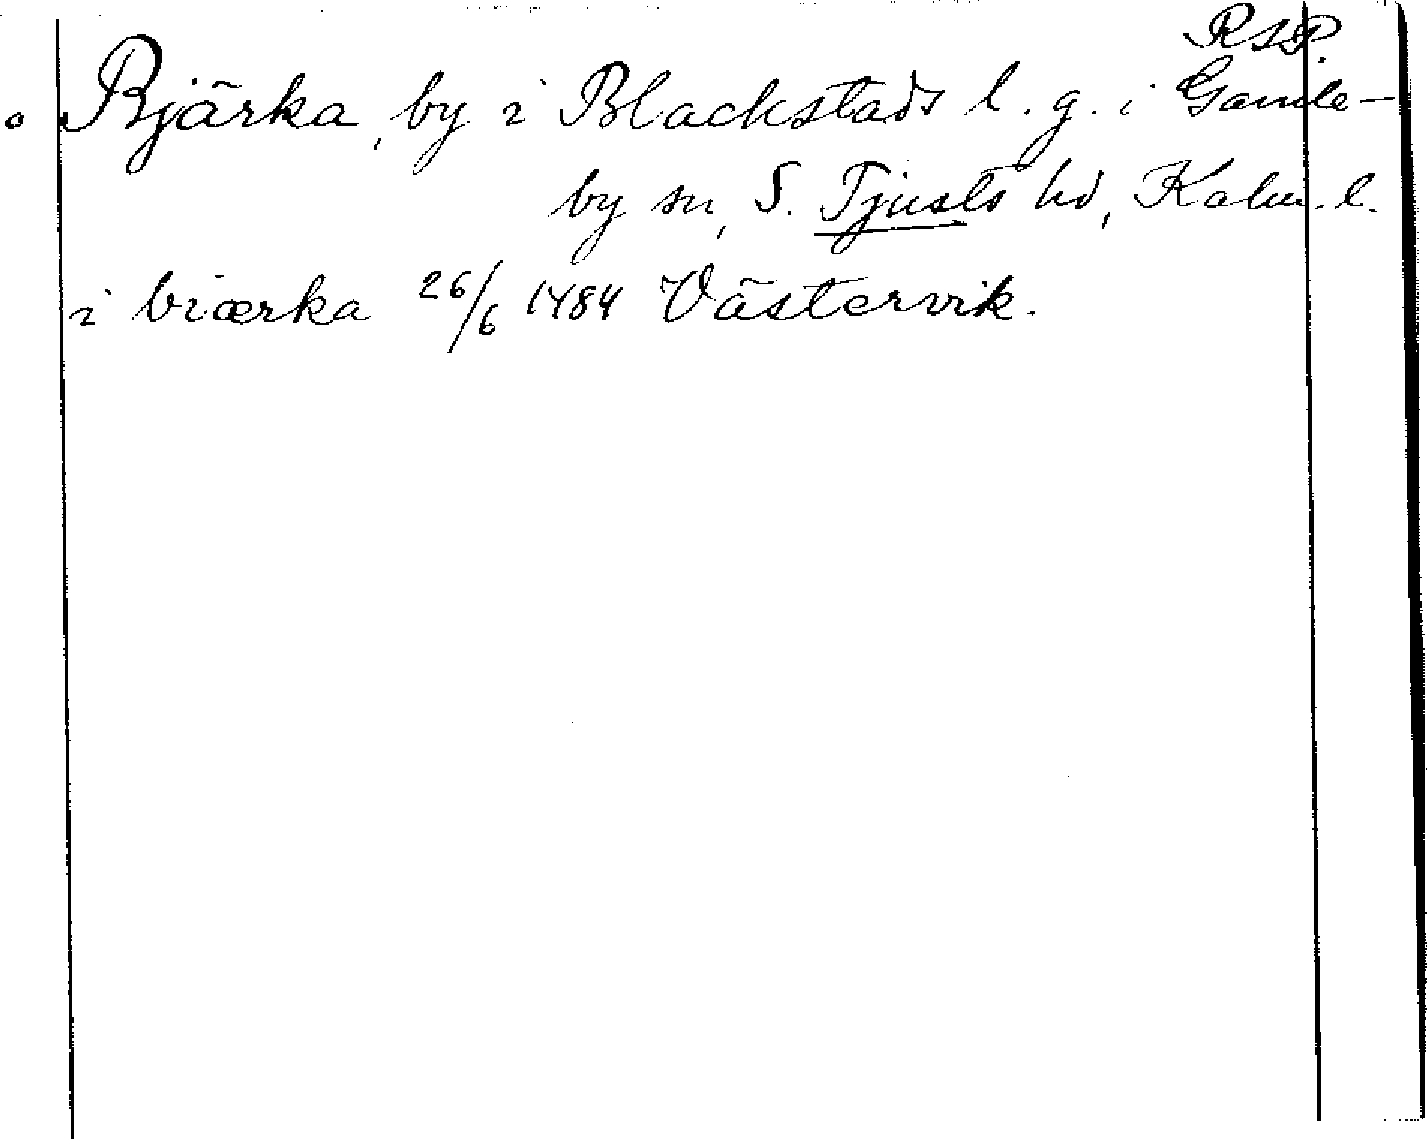 RAP.
Bjärka, by i Blackstads l. g. i Gamle-
by sn, S. Tjusts hd, Kalm. l.
i biærka 26/6 1484 Västervik.